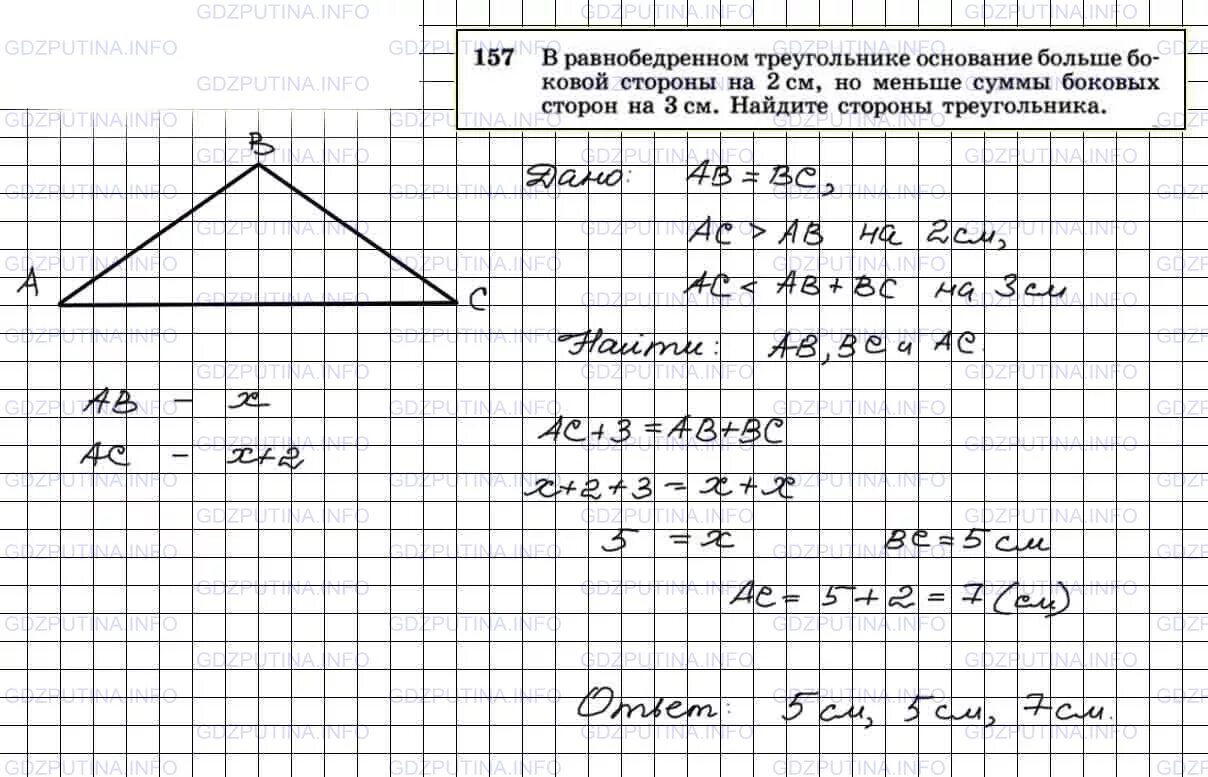 157 В равнобедренном треугольнике основание больше бо-
ковой стороны на 2 см, но меньше суммы боковых
сторон на 3 см. Найдите стороны треугольника.
B
A
C
AB - x
AC - x+2
Дано: AB = BC,
AC > AB на 2 см,
AC < AB + BC на 3 см
Найти: AB, BC и AC.
AC + 3 = AB + BC
x + 2 + 3 = x + x
5 = x BC = 5 см
AC = 5 + 2 = 7 (см)
Ответ: 5 см, 5 см, 7 см.
GDZPUTINA.INFO